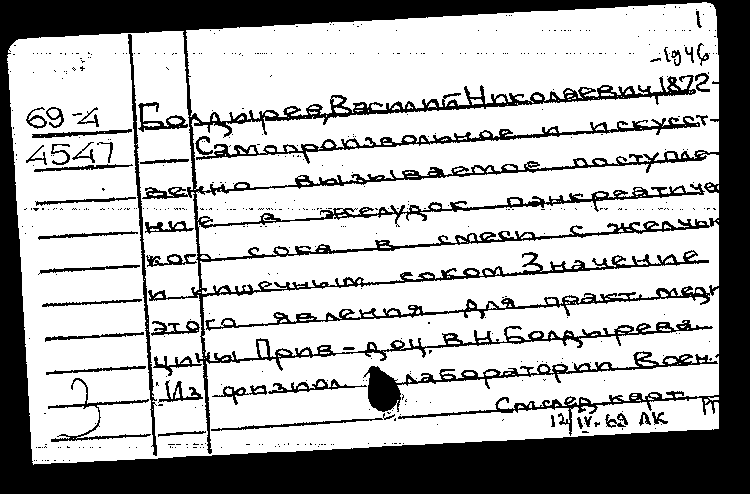 1
-1946
69-4 Болдырев, Василий Николаевич, 1872-
4547 Самопроизвольное и искусст-
венно вызываемое поступле-
ние в желудок панкреатичес
кого сока в смеси с желчью
и кишечным соком Значение
этого явления для практ. меди
цины Прив-доц. В.Н. Болдырева
Из физиол лаборатории Воен.-
3 См след карт.
12/IV-69 ЛК РГ